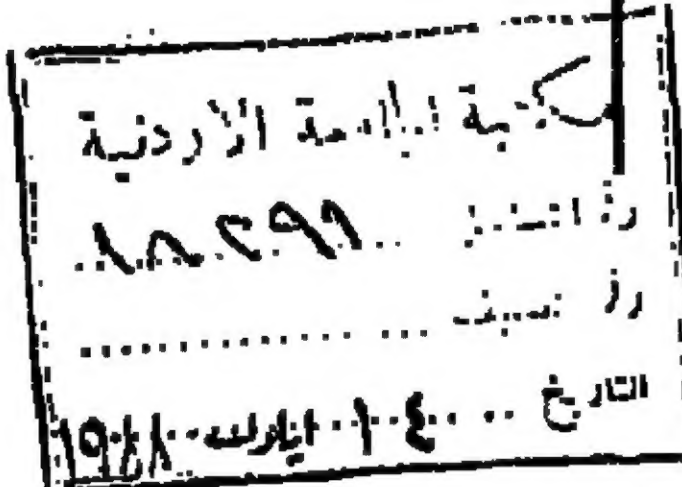 مكتبة الجامعة الاردنية
رقم التسلسل
رقم تصنيف
التاريخ ١٤ ايلول ١٩٨٨